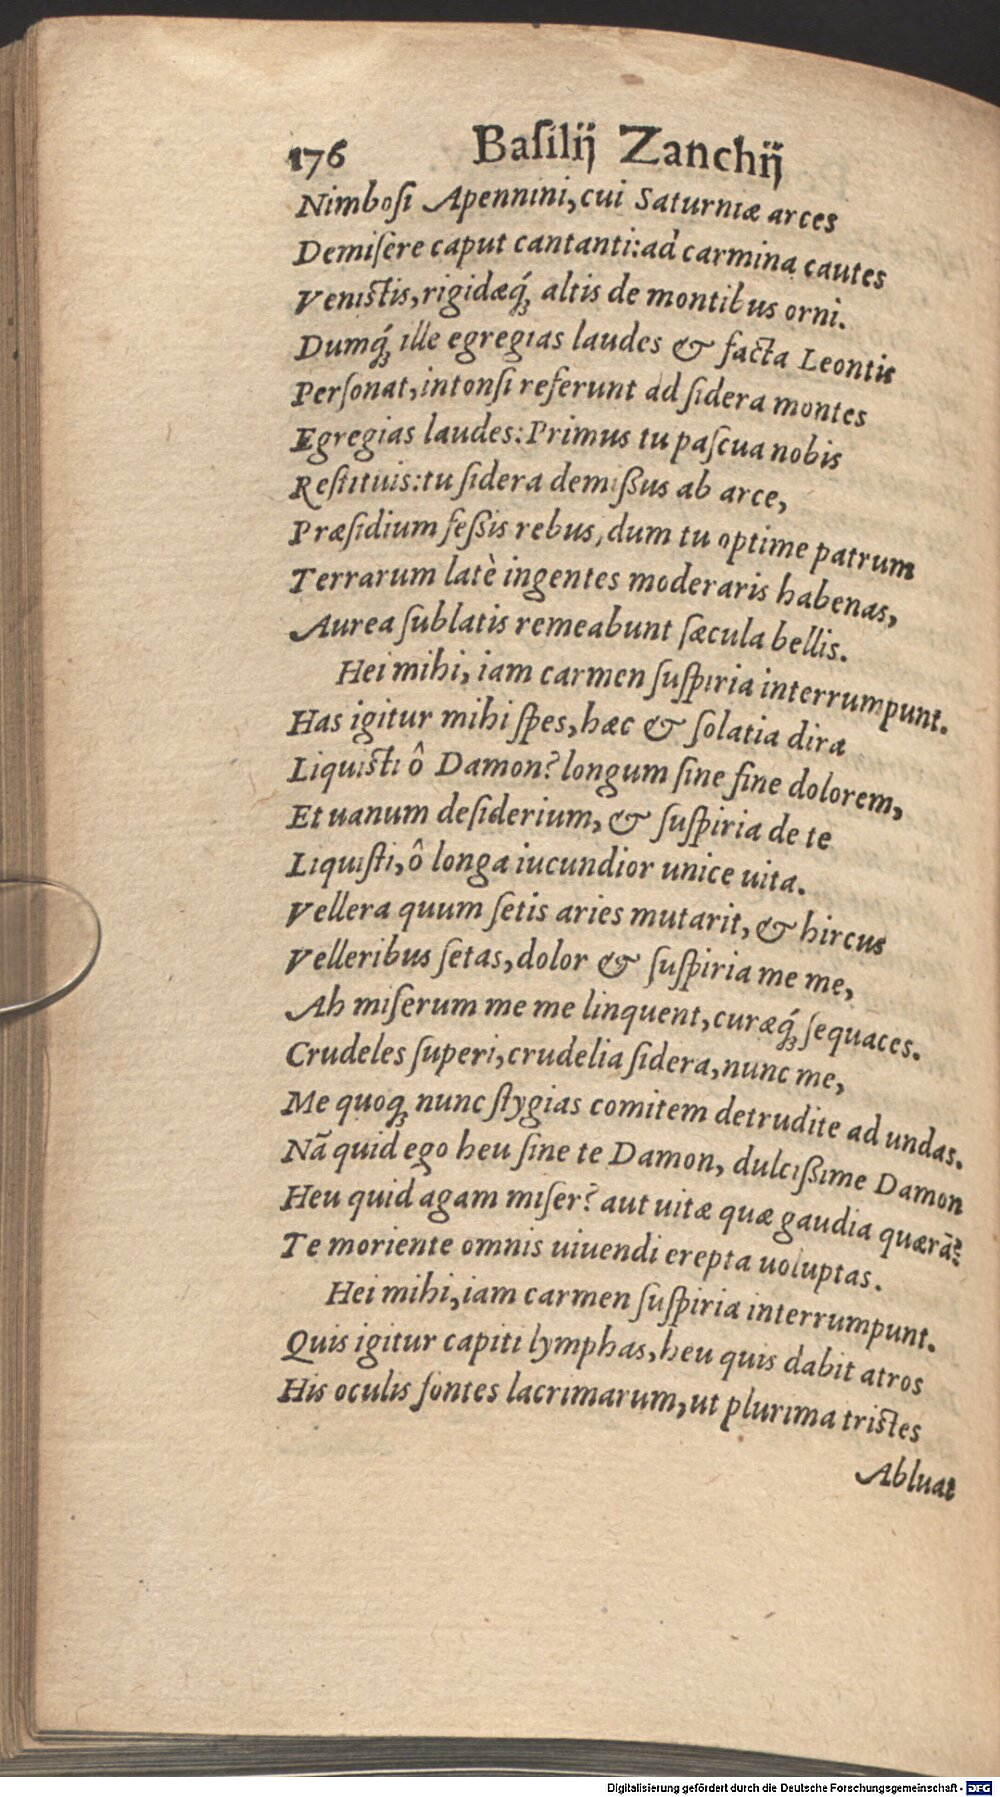 176 Baſilij Zanchij
Nimboſi Apennini, cui Saturniæ arces
Demiſere caput cantanti: ad carmina cautes
Veniſtis, rigidæq́; altis de montibus orni.
Dumq́; ille egregias laudes & facta Leontis
Perſonat, intonſi referunt ad ſidera montes
Egregias laudes: Primus tu paſcua nobis
Reſtituis: tu ſidera demißus ab arce,
Præſidium feßis rebus, dum tu optime patrum
Terrarum latè ingentes moderaris habenas,
Aurea ſublatis remeabunt ſæcula bellis.
Hei mihi, iam carmen ſuſpiria interrumpunt.
Has igitur mihi ſpes, hæc & ſolatia dira
Liquiſti ô Damon? longum ſine fine dolorem,
Et uanum deſiderium, & ſuſpiria de te
Liquiſti, ô longa iucundior unice uita.
Vellera quum ſetis aries mutarit, & hircus
Velleribus ſetas, dolor & ſuſpiria me me,
Ah miſerum me me linquent, curæq́; ſequaces.
Crudeles ſuperi, crudelia ſidera, nunc me,
Me quoq; nunc ſtygias comitem detrudite ad undas.
Nã quid ego heu ſine te Damon, dulcißime Damon
Heu quid agam miſer? aut uitæ quæ gaudia quærã?
Te moriente omnis uiuendi erepta uoluptas.
Hei mihi, iam carmen ſuſpiria interrumpunt.
Quis igitur capiti lymphas, heu quis dabit atros
His oculis fontes lacrimarum, ut plurima triſtes
Abluat
Digitalisierung gefördert durch die Deutsche Forschungsgemeinschaft - DFG